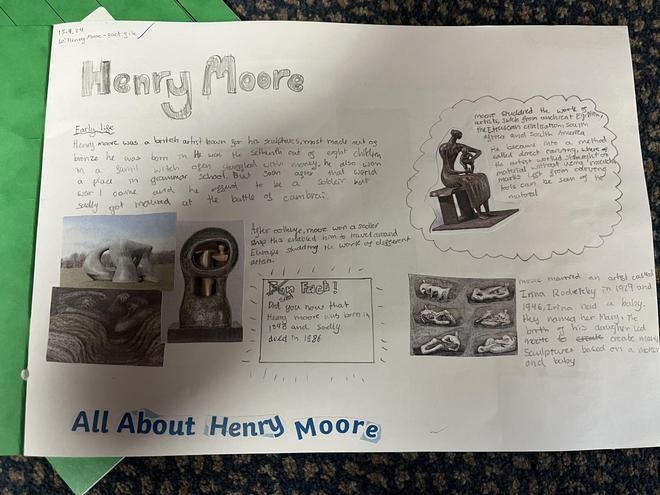 13.9.24
LO: Henry Moore - fact file
Henry Moore
Early life
Henry moore was a british artist known for his sculptures, most made out of
bronze he was born in He was the seventh out of eight children
in a family witch often struggled with money. he also won
a place in grammer school. But soon after that world
war 1 came and he offered to be a soldeir but
sadly got injured at the battle of cambrai.
After collage, moore won a scoller
ship this enabled him to travel around
Europe studding the work of different
artists.
Fun Fact!
Did you now that
Henry moore was born in
1898 and sadly
died in 1986
moore studdied the work of
artists, such from anchient Egyption,
the Etruscan civilisation, South
africa and South America
He became into a method
called direct carving, where
the artist worked straight on
material without using models
marks left from carving
tools can be seen of the
matiral
moore married an artist called
Irina Rodetsky in 1929 and
1946, Irina had a baby.
they named her Mary. The
borth of his daughter led
moore to create create many
Sculptures based on a mother
and baby
All About Henry Moore